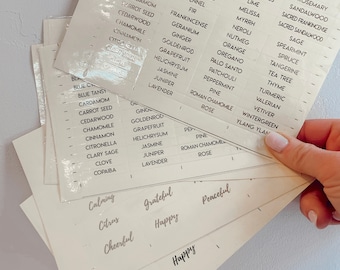 CARROT SEED
CHAMOMILE
CINNAMON
FIR
FRANKINCENSE
GERANIUM
GINGER
GOLDENROD
GRAPEFRUIT
HELICHRYSUM
JASMINE
JUNIPER
LAVENDER
LIME
MELISSA
MYRRH
NEROLI
NUTMEG
ORANGE
OREGANO
PALO SANTO
PATCHOULI
PEPPERMINT
PINE
ROMAN CHAMOMILE
ROSE
ROSEMARY
SANDALWOOD
SACRED FRANKINCENSE
SACRED SANDALWOOD
SAGE
SPEARMINT
SPRUCE
TANGERINE
TEA TREE
THYME
TURMERIC
VALERIAN
VETIVER
WINTERGREEN
YLANG YLANG
BLUE TANSY
CARDAMOM
CARROT SEED
CEDARWOOD
CHAMOMILE
CINNAMON
CITRONELLA
CLARY SAGE
CLOVE
COPAIBA
GINGER
GOLDENROD
GRAPEFRUIT
HELICHRYSUM
JASMINE
JUNIPER
LAVENDER
PINE
ROMAN CHAMOMILE
ROSE
Calming
Grateful
Peaceful
Citrus
Happy
Cheerful
Happy